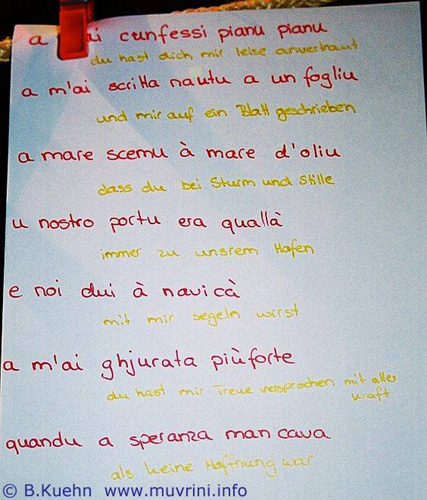 a ai cunfessi pianu pianu
du hast dich mir leise anvertraut
a m'ai scritta nantu a un fogliu
und mir auf ein Blatt geschrieben
a mare scemu à mare d'oliu
dass du bei Sturm und Stille
u nostro portu era quallà
immer zu unsrem Hafen
e noi dui à navicà
mit mir segeln wirst
a m'ai ghjurata piùforte
du hast mir Treue versprochen mit aller
Kraft
quandu a speranza mancava
als keine Hoffnung war
© B.Kuehn www.muvrini.info